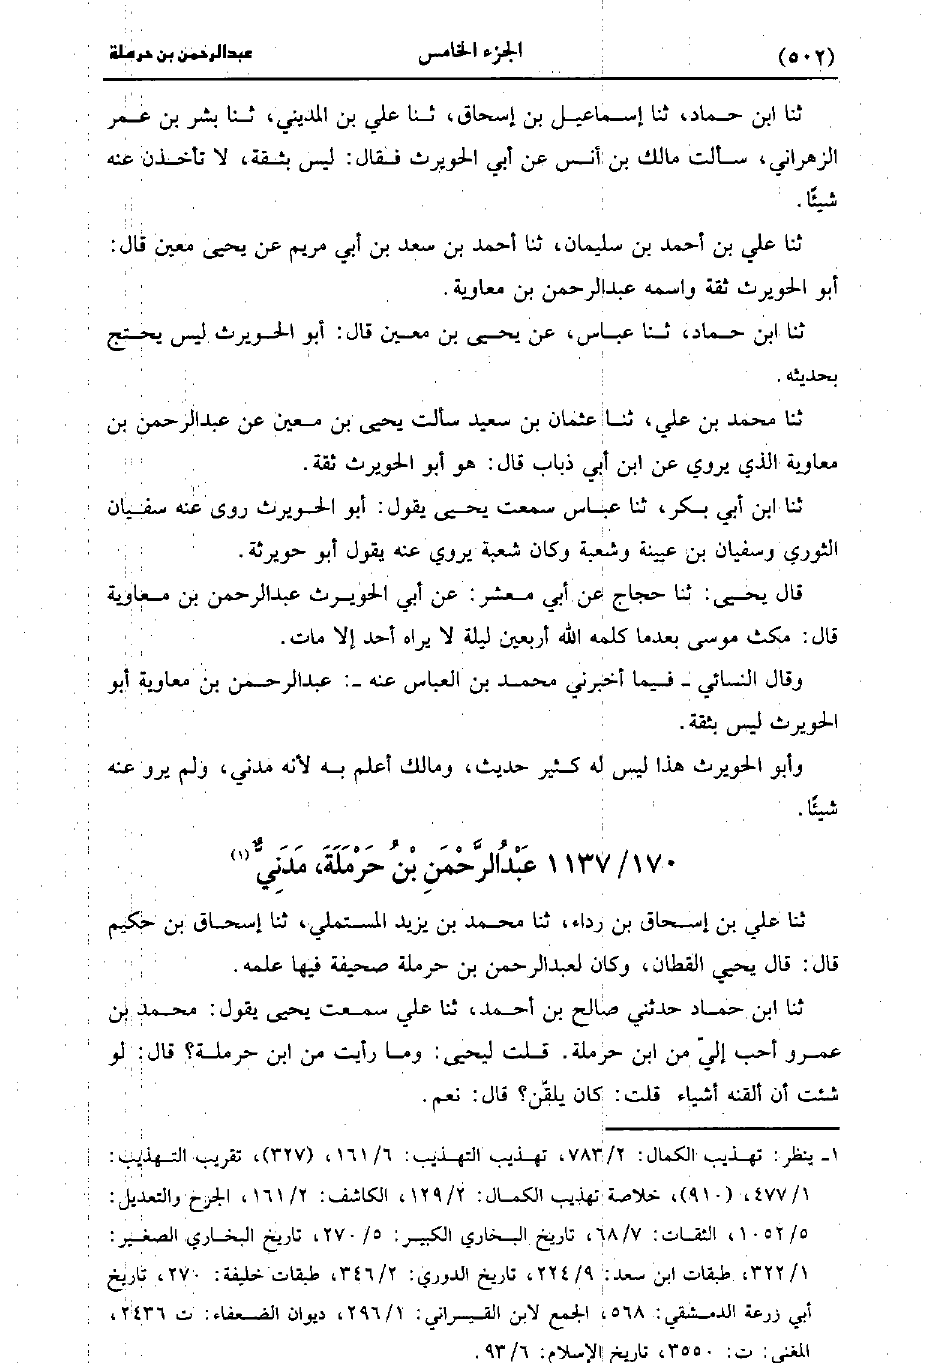 (٥٠٢) الجزء الخامس عبدالرحمن بن حرملة
ثنا ابن حماد، ثنا إسماعيل بن إسحاق، ثنا علي بن المديني، ثنا بشر بن عمر
الزهراني، سألت مالك بن أنس عن أبي الحويرث فقال: ليس بثقة، لا تأخذن عنه
شيئًا.
ثنا علي بن أحمد بن سليمان، ثنا أحمد بن سعد بن أبي مريم عن يحيى معين قال:
أبو الحويرث ثقة واسمه عبدالرحمن بن معاوية.
ثنا ابن حماد، ثنا عباس، عن يحيى بن معين قال: أبو الحويرث ليس يحتج
بحديثه.
ثنا محمد بن علي، ثنا عثمان بن سعيد سألت يحيى بن معين عن عبدالرحمن بن
معاوية الذي يروي عن ابن أبي ذباب قال: هو أبو الحويرث ثقة.
ثنا ابن أبي بكر، ثنا عباس سمعت يحيى يقول: أبو الحويرث روى عنه سفيان
الثوري وسفيان بن عيينة وشعبة وكان شعبة يروي عنه يقول أبو حويرثة.
قال يحيى: ثنا حجاج عن أبي معشر: عن أبي الحويرث عبدالرحمن بن معاوية
قال: مكث موسى بعدما كلمه الله أربعين ليلة لا يراه أحد إلا مات.
وقال النسائي - فيما أخبرني محمد بن العباس عنه -: عبدالرحمن بن معاوية أبو
الحويرث ليس بثقة.
وأبو الحويرث هذا ليس له كثير حديث، ومالك أعلم به لأنه مدني، ولم يرو عنه
شيئًا.
١١٣٧/١٧٠ عَبْدُالرَّحْمَنِ بْنُ حَرْمَلَةَ، مَدَنِيٌّ(١)
ثنا علي بن إسحاق بن رداء، ثنا محمد بن يزيد المستملي، ثنا إسحاق بن حكيم
قال: قال يحيي القطان، وكان لعبدالرحمن بن حرملة صحيفة فيها علمه.
ثنا ابن حماد حدثني صالح بن أحمد، ثنا علي سمعت يحيى يقول: محمد بن
عمرو أحب إليّ من ابن حرملة. قلت ليحيى: وما رأيت من ابن حرملة؟ قال: لو
شئت أن ألقنه أشياء قلت: كان يلقّن؟ قال: نعم.
١- ينظر: تهذيب الكمال: ٧٨٣/٢، تهذيب التهذيب: ١٦١/٦، (٣٢٧)، تقريب التهذيب:
٤٧٧/١، (٩١٠)، خلاصة تهذيب الكمال: ١٢٩/٢، الكاشف: ١٦١/٢، الجرح والتعديل:
١٠٥٢/٥، الثقات: ٦٨/٧، تاريخ البخاري الكبير: ٢٧٠/٥، تاريخ البخاري الصغير:
٣٢٢/١، طبقات ابن سعد: ٢٢٤/٩، تاريخ الدوري: ٣٤٦/٢، طبقات خليفة: ٢٧٠، تاريخ
أبي زرعة الدمشقي: ٥٦٨، الجمع لابن القيراني: ٢٩٦/١، ديوان الضعفاء: ت ٢٤٣٦،
المغني: ت: ٣٥٥٠، تاريخ الإسلام: ٩٣/٦.